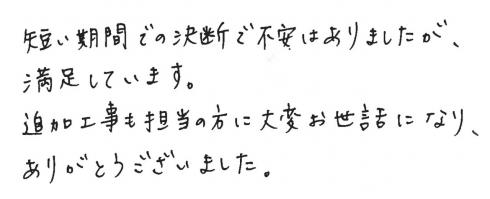 短い期間での決断で不安はありましたが、
満足しています。
追加工事も担当の方に大変お世話になり、
ありがとうございました。